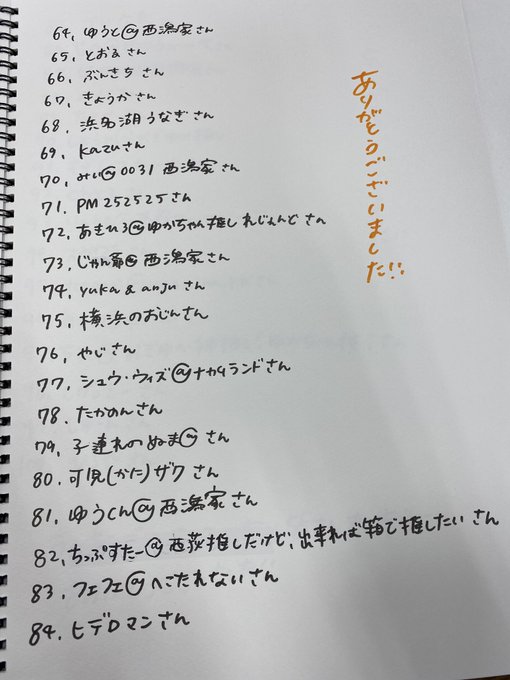 64. ゆうと@西潟家さん
65. とおるさん
66. ぶんきちさん
67. きょうかさん
68. 浜名湖うなぎさん
69. Kazuさん
70. みい@0031西潟家さん
71. PM252525さん
72. あきひろ@ゆかちゃん推しれじぇんどさん
73. じゃん爺@西潟家さん
74. yuka & anjuさん
75. 横浜のおじんさん
76. やじさん
77. シュウ・ウィズ@ナカムランドさん
78. たかめんさん
79. 子連れのぬま@さん
80. 可児(かに)ザクさん
81. ゆうくん@西潟家さん
82. ちっぷすたー@西荻推しだけど、出来れば箱で推したいさん
83. フェフェ@へこたれないさん
84. ヒデロマンさん
ありがとうございました!!